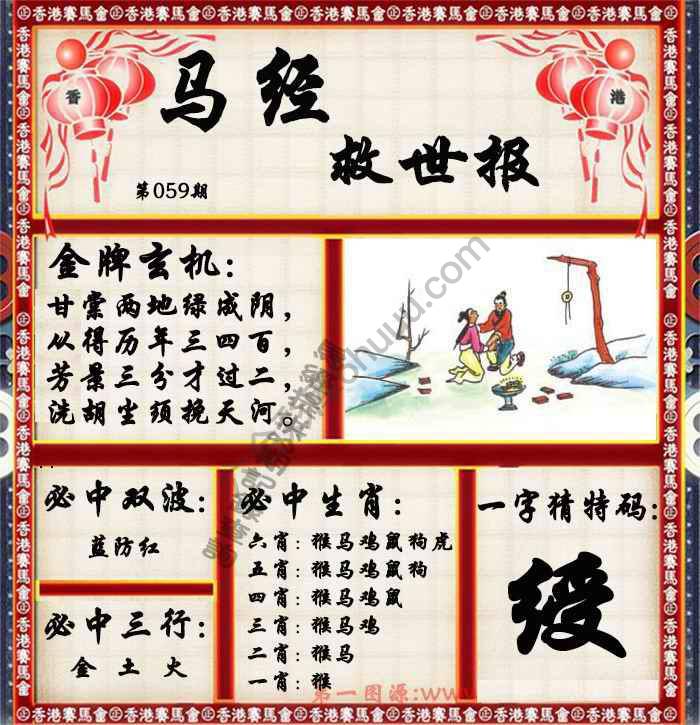 香港賽馬會
香
港
马经
救世报
第059期
金牌玄机:
甘棠两地绿成阴,
从得历年三四百,
芳景三分才过二,
洗胡尘须挽天河。
必中双波:
蓝防红
必中三行:
金 土 火
必中生肖:
六肖: 猴马鸡鼠狗虎
五肖: 猴马鸡鼠狗
四肖: 猴马鸡鼠
三肖: 猴马鸡
二肖: 猴马
一肖: 猴
一字猜特码:
绶
第一图源:www